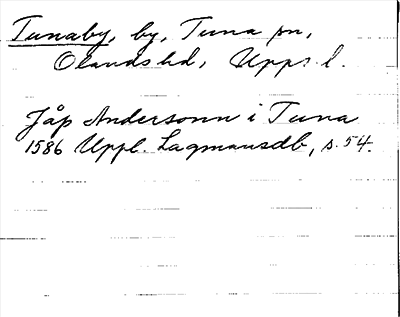 Tunaby, by, Tuna sn,
Olands hd, Upps. l.
Jåp Andersonn i Tuna
1586 Uppl. Lagmansdb, s. 54.